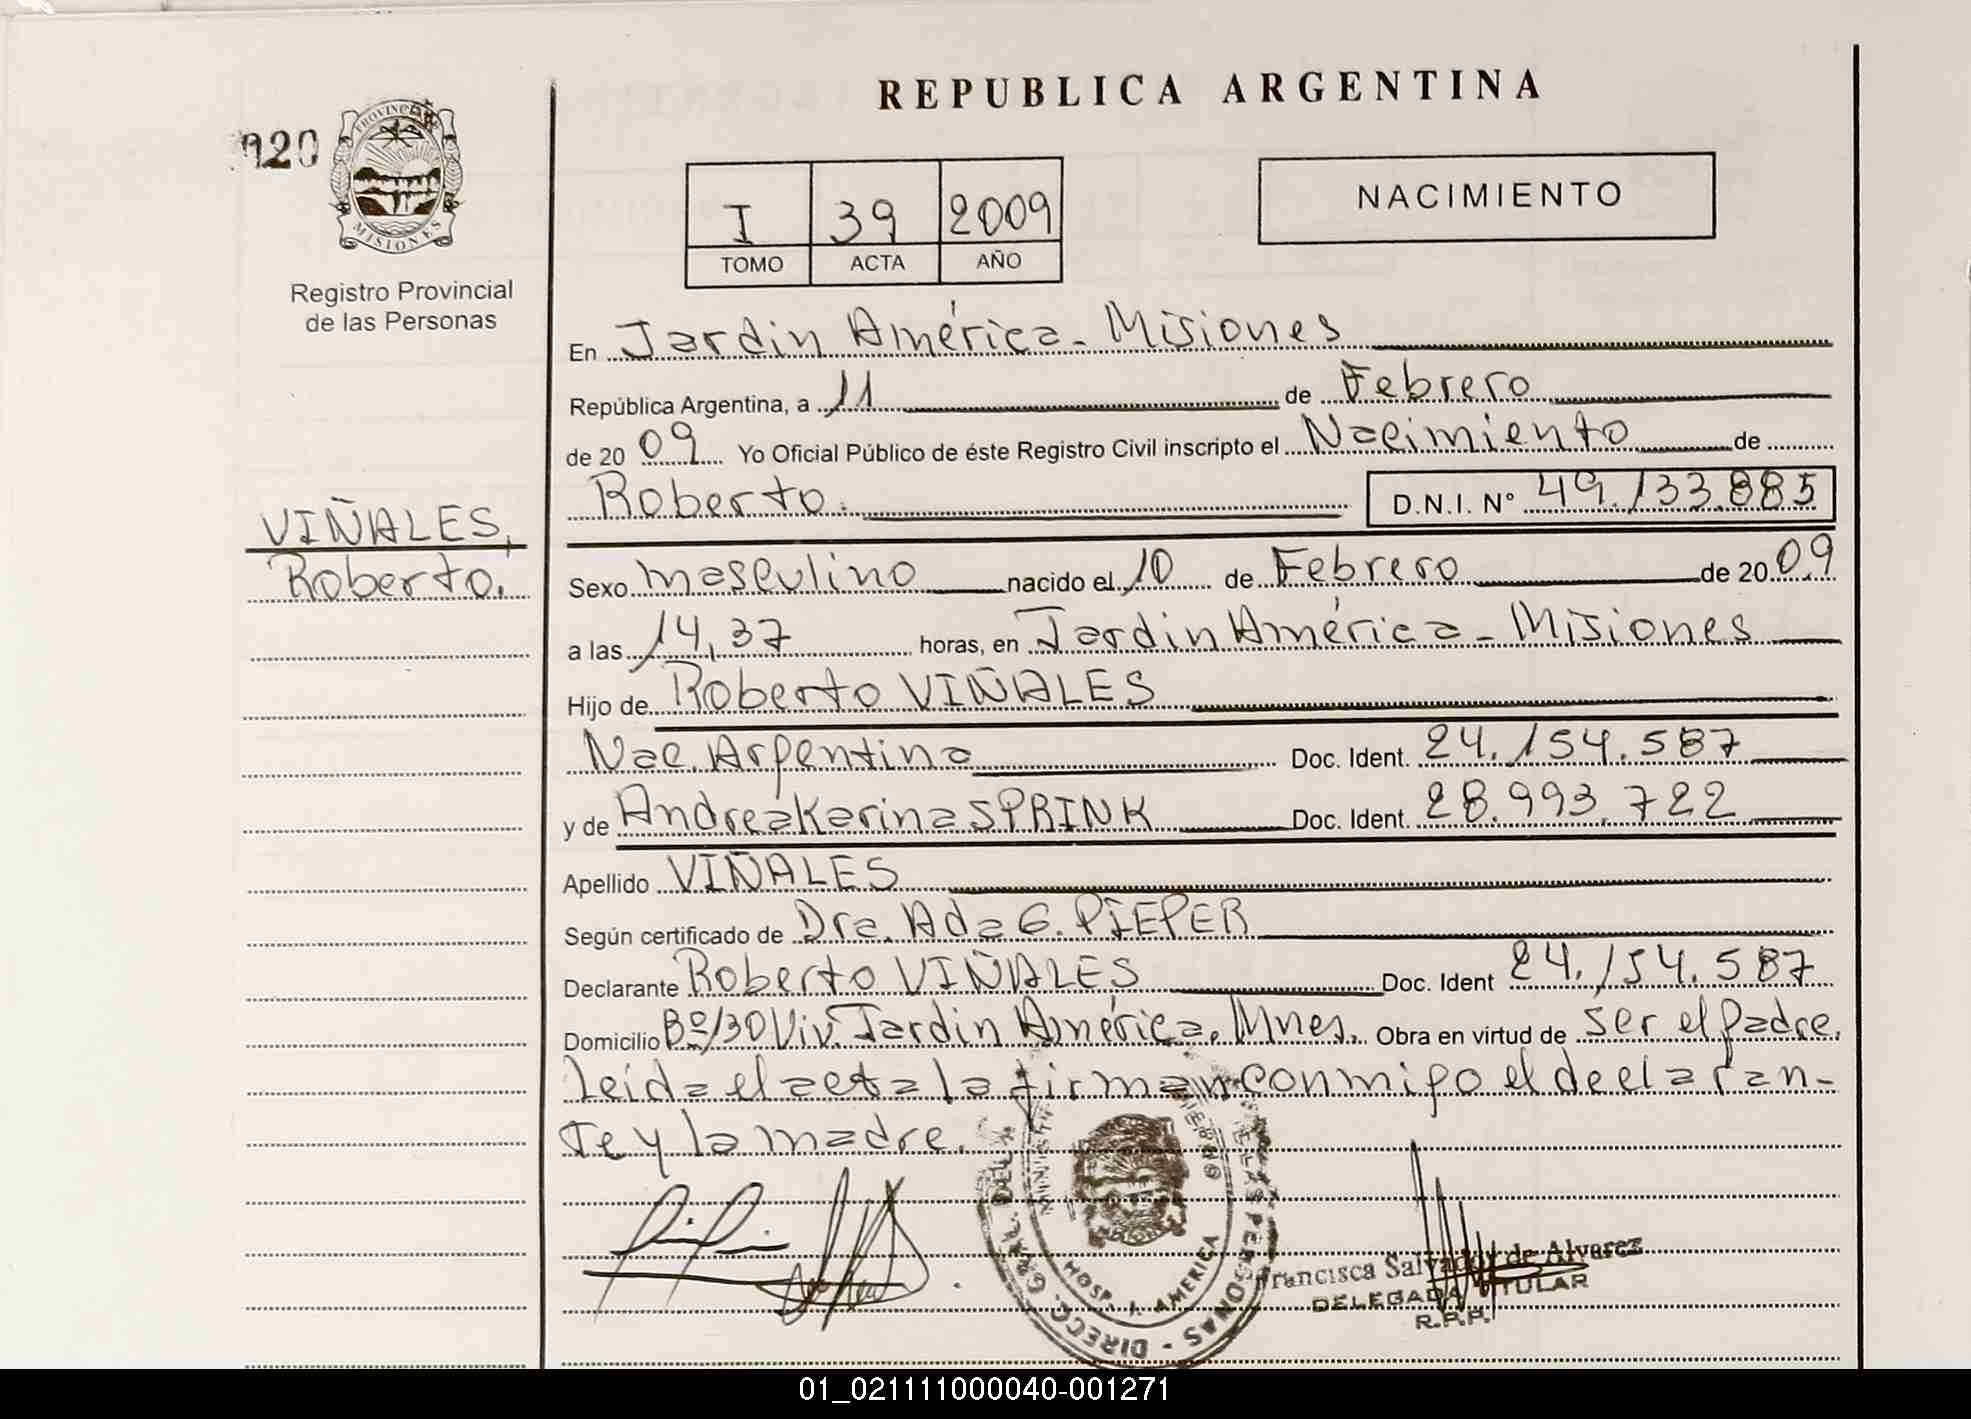 REPUBLICA ARGENTINA
920
PROVINCIA DE MISIONES
Registro Provincial
de las Personas
I 39 2009
TOMO ACTA AÑO
NACIMIENTO
En Jardin América - Misiones
República Argentina, a 11 de Febrero
de 2009 Yo Oficial Público de éste Registro Civil inscripto el Nacimiento de
Roberto. D.N.I. Nº 49.133.885
VIÑALES,
Roberto.
Sexo masculino nacido el 10 de Febrero de 2009
a las 14,37 horas, en Jardin América - Misiones
Hijo de Roberto VIÑALES
Nac. Argentina Doc. Ident. 24.154.587
y de Andrea Karina SPRINK Doc. Ident. 28.993.722
Apellido VIÑALES
Según certificado de Dra. Ada G. PIEPER
Declarante Roberto VIÑALES Doc. Ident 24.154.587
Domicilio Bº 130 Viv. Jardin América, Mnes. Obra en virtud de ser el padre.
Leída el acta la firman conmigo el declaran-
te y la madre.
HOSP. J. AMERICA
Francisca Salvador de Alvarez
DELEGADA TITULAR
R.P.P.
01_021111000040-001271